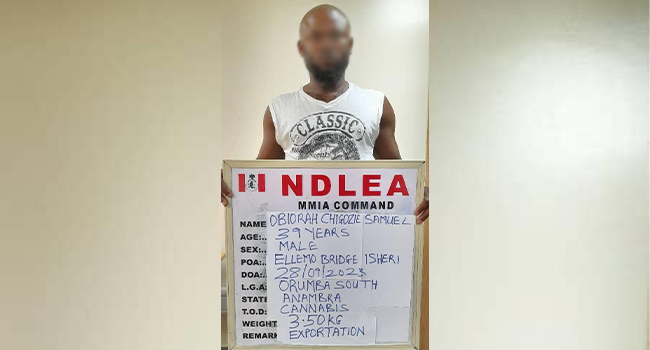 CLASSIC
NDLEA
MMIA COMMAND
NAME: OBIORAH CHIGOZIE SAMUEL
AGE:.. 39 YEARS
SEX:.. MALE
POA:.. ELLEMO BRIDGE ISHERI
DOA:.. 28/09/2023
L.G.A: ORUMBA SOUTH
STATE ANAMBRA
T.O.D: CANNABIS
WEIGHT 3.50KG
REMARK EXPORTATION